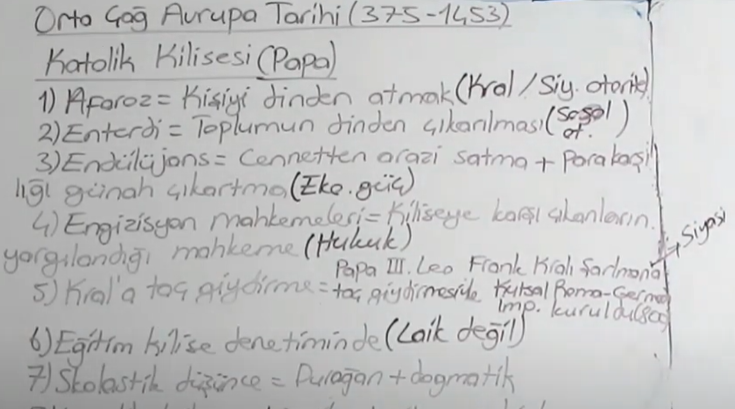 Orta Çağ Avrupa Tarihi (375-1453)
Katolik Kilisesi (Papa)
1) Aforoz = Kişiyi dinden atmak (Kral / Siy. otorite)
2) Enterdi = Toplumun dinden çıkarılması (Sosyal ot.)
3) Endülüjans = Cennetten arazi satma + Para karşı
lığı günah çıkartma (Eko. güç)
4) Engizisyon mahkemeleri = Kiliseye karşı çıkanların
yargılandığı mahkeme (Hukuk)
→ Siyasi
Papa III. Leo Frank Kralı Şarlman'a
5) Kral'a taç giydirme = taç giydirmesiyle Kutsal Roma-Germen
imp. kuruldu (800)
6) Eğitim kilise denetiminde (Laik değil)
7) Skolastik düşünce = Durağan + dogmatik